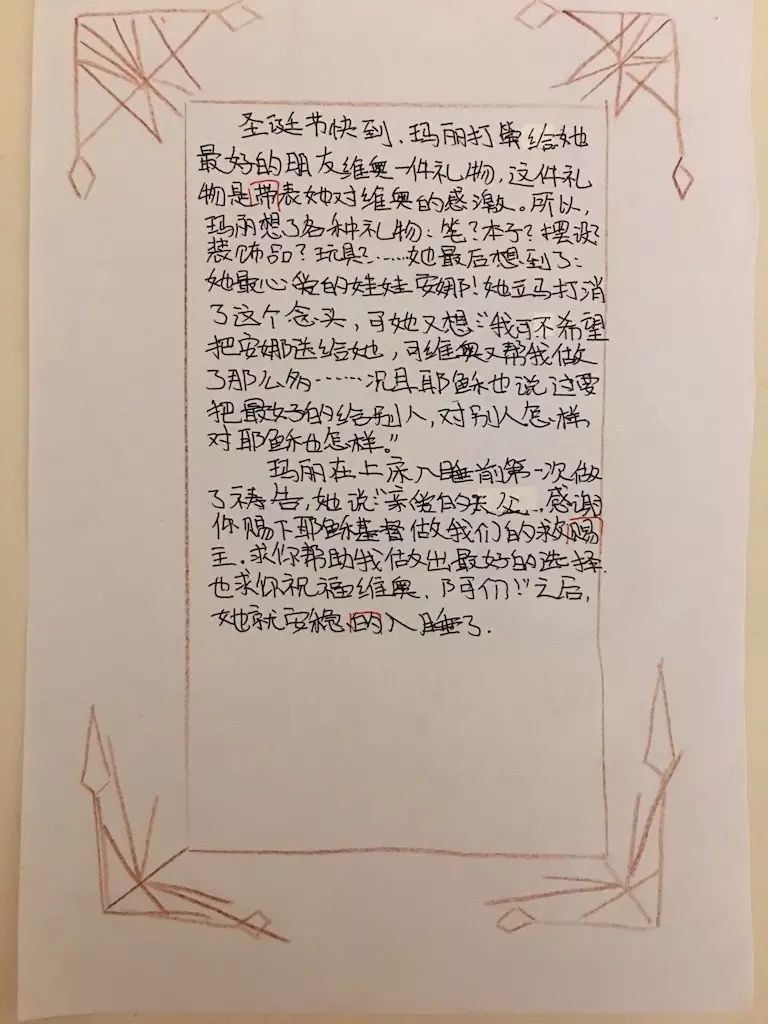 圣诞节快到，玛丽打算给她
最好的朋友维奥一件礼物，这件礼
物是带表她对维奥的感激。所以，
玛丽想了各种礼物：笔？本子？摆设？
装饰品？玩具？……她最后想到了：
她最心爱的娃娃安娜！她立马打消
了这个念头，可她又想：“我可不希望
把安娜送给她，可维奥又帮我做
了那么多……况且耶稣也说过要
把最好的给别人，对别人怎样，
对耶稣也怎样。”
玛丽在上床入睡前第一次做
了祷告，她说：“亲爱的天父，感谢
你赐下耶稣基督做我们的救赐
主，求你帮助我做出最好的选择，
也求你祝福维奥，阿们！”之后，
她就安稳的入睡了．